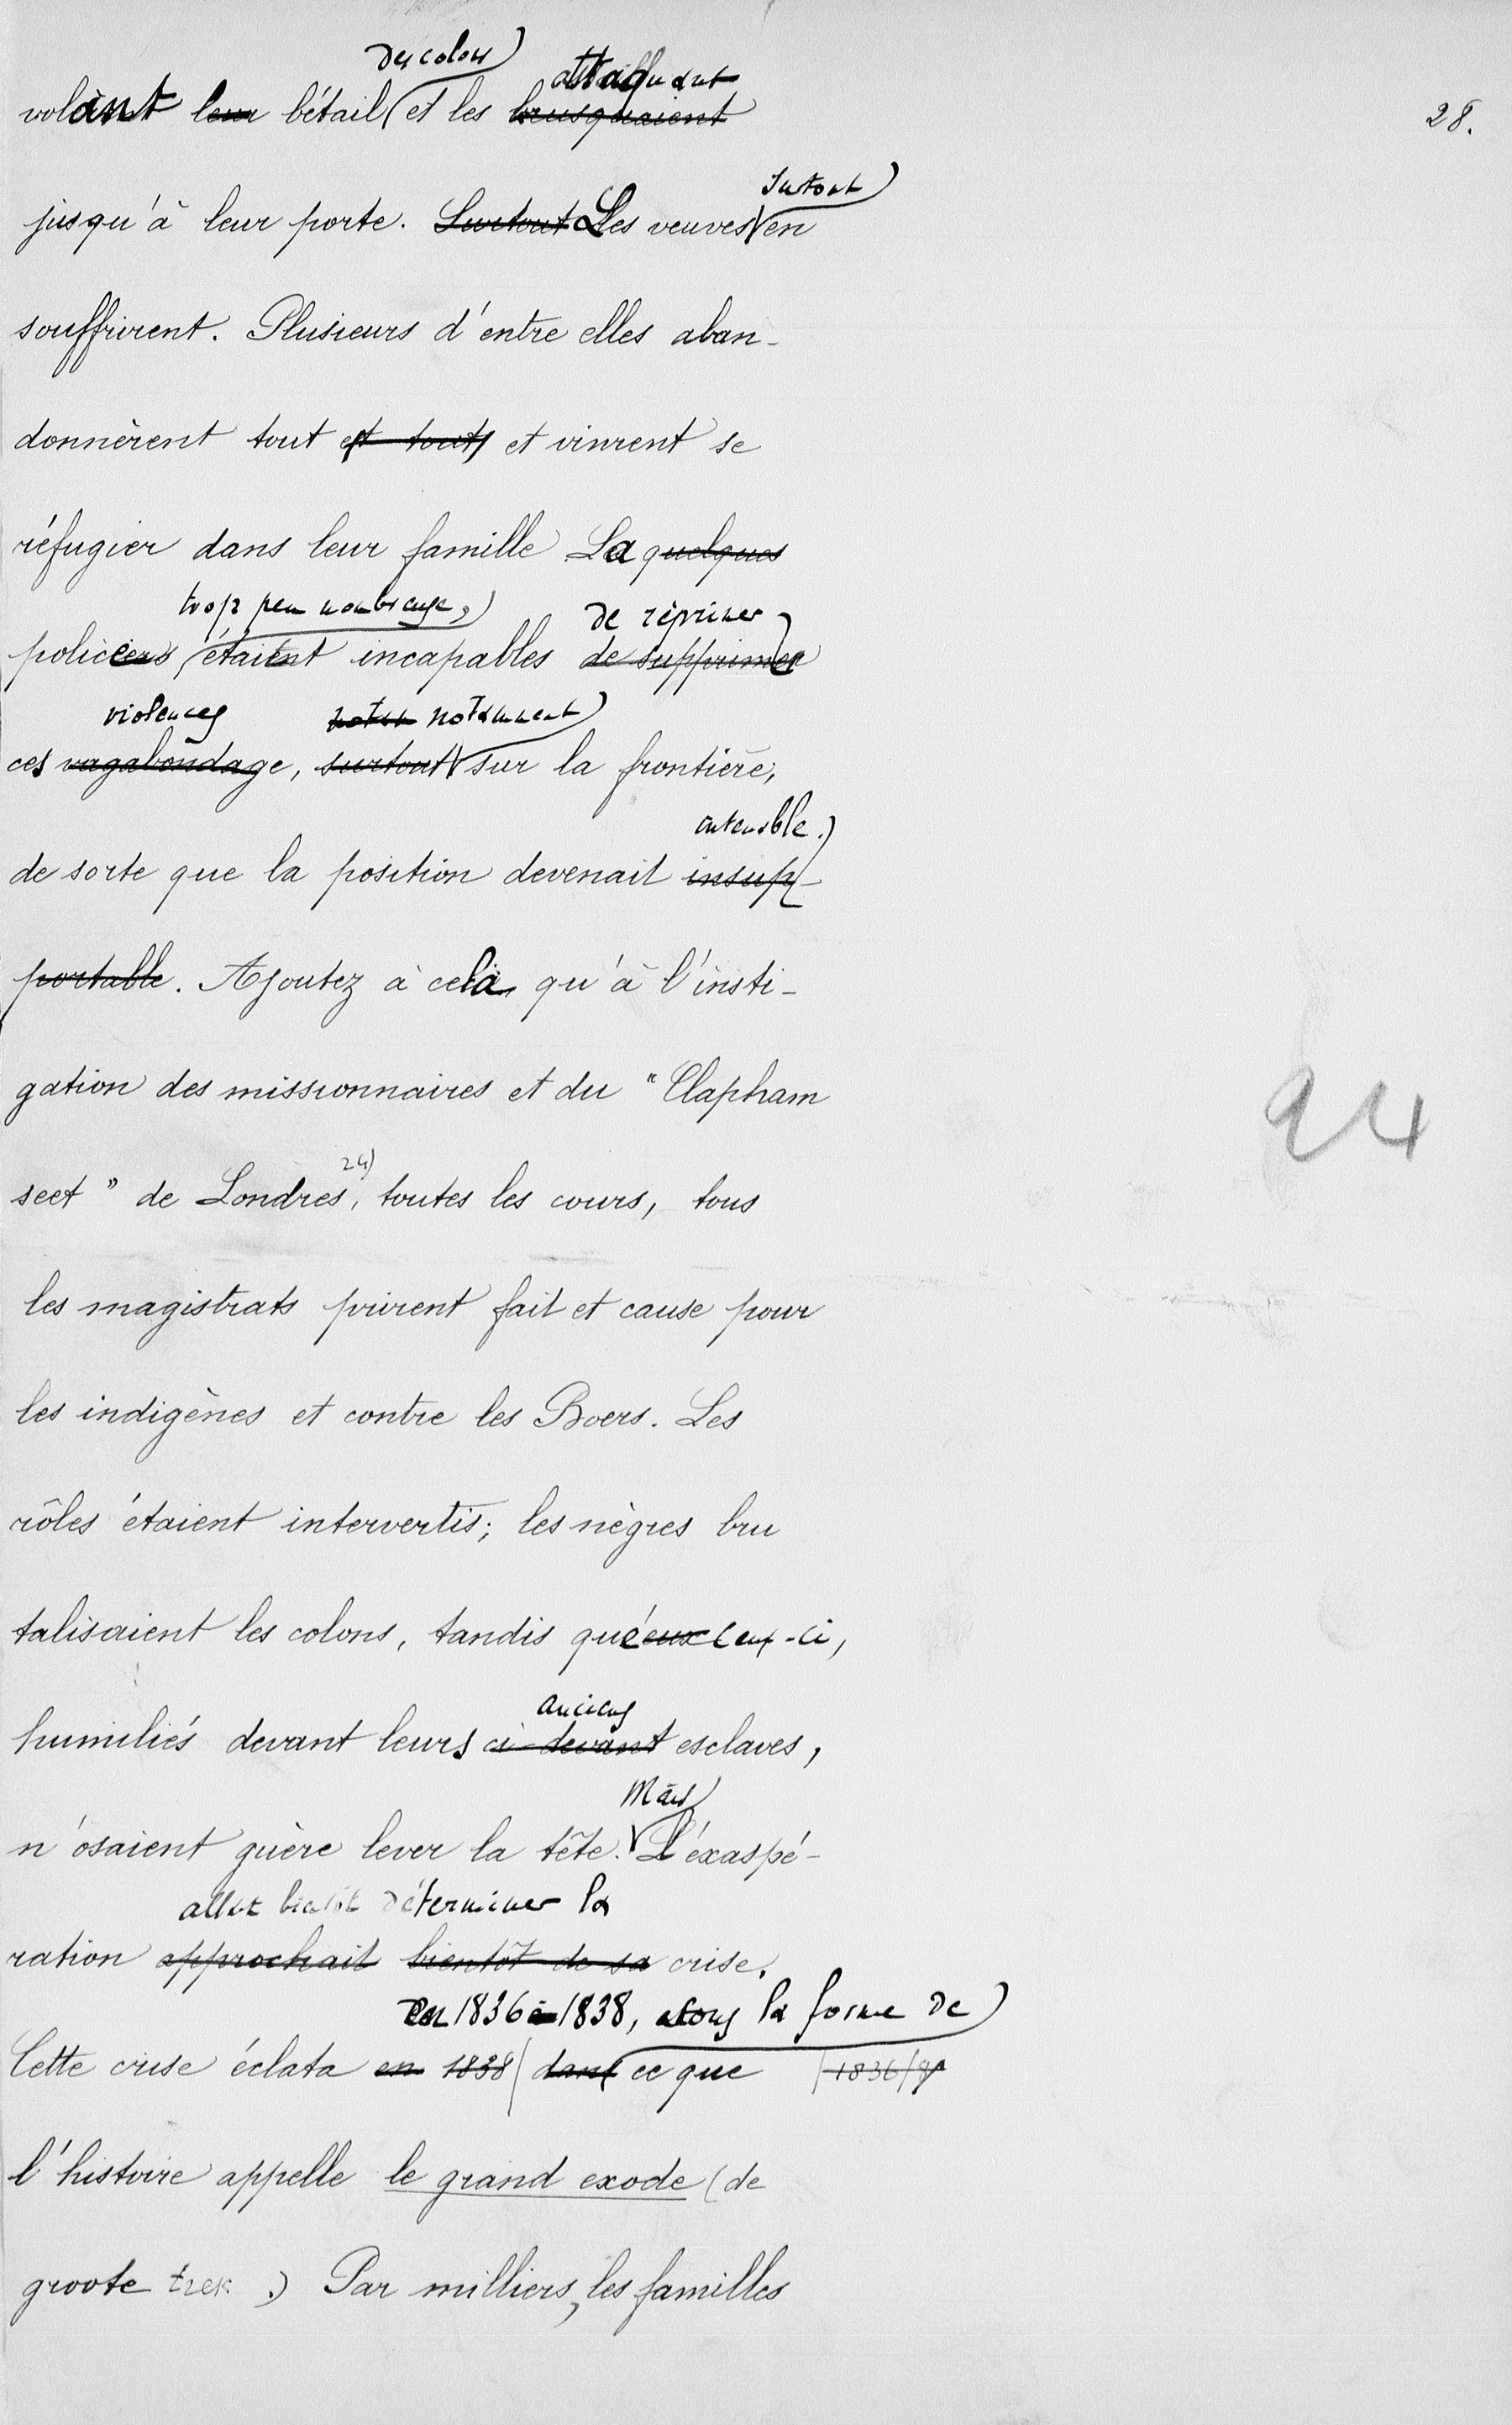 28.
des colons attaquant
volant leur bétail et les brusquaient
surtout
jusqu'à leur porte. Surtout Les veuves en
souffrirent. Plusieurs d'entre elles aban-
donnèrent tout et tout et vinrent se
réfugier dans leur famille La quelques
trop peu nombreuse, de réprimer
policiers étaient incapables de supprimer
violences notam notamment
ces vagabondage, surtout sur la frontière,
intenable.
de sorte que la position devenait insup-
portable. Ajoutez à cela qu'à l'insti-
gation des missionnaires et du "Clapham
sect" de Londres, 24) toutes les cours, tous
24
les magistrats prirent fait et cause pour
les indigènes et contre les Boers. Les
rôles étaient intervertis; les nègres bru
talisaient les colons, tandis que eux ceux-ci,
anciens
humiliés devant leurs ci-devant esclaves,
Mais
n'osaient guère lever la tête. L'éxaspé-
allait bientôt déterminer la
ration approchait bientôt de sa crise.
en 1836 à 1838, sous la forme de
Cette crise éclata en 1838 dans ce que 1836/
l'histoire appelle le grand exode (de
groote trek.) Par milliers, les familles